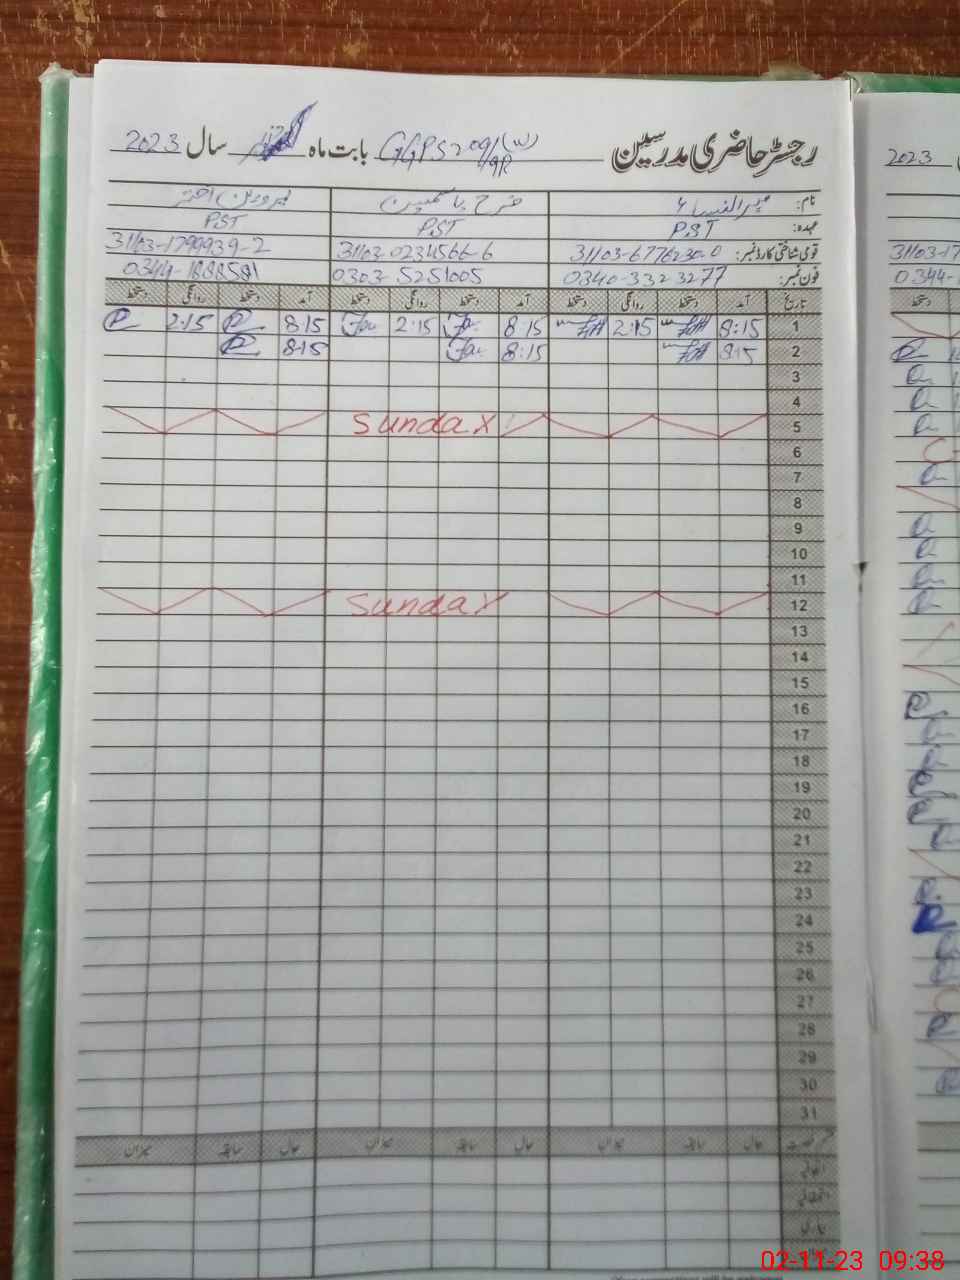 رجسٹر حاضری مدرسین GGPS 209/9R (W) بابت ماہ سال 2023
نام: مہرالنساء فرح یاسمین پروین اختر
عہدہ: PST PST PST
قومی شناختی کارڈ نمبر: 31103-6776230-0 31103-0234566-6 31103-1799939-2
فون نمبر: 0340-3323277 0303-5251005 0344-1888581
تاریخ آمد دستخط روانگی دستخط آمد دستخط روانگی دستخط آمد دستخط روانگی دستخط
1 8:15 2:15 8:15 2:15 8:15 2:15
2 8:15 8:15 8:15
3
4
5 Sunday
6
7
8
9
10
11
12 Sunday
13
14
15
16
17
18
19
20
21
22
23
24
25
26
27
28
29
30
31
حال سابقہ میزان حال سابقہ میزان حال سابقہ میزان
اتفاقی
2023
02-11-23 09:38